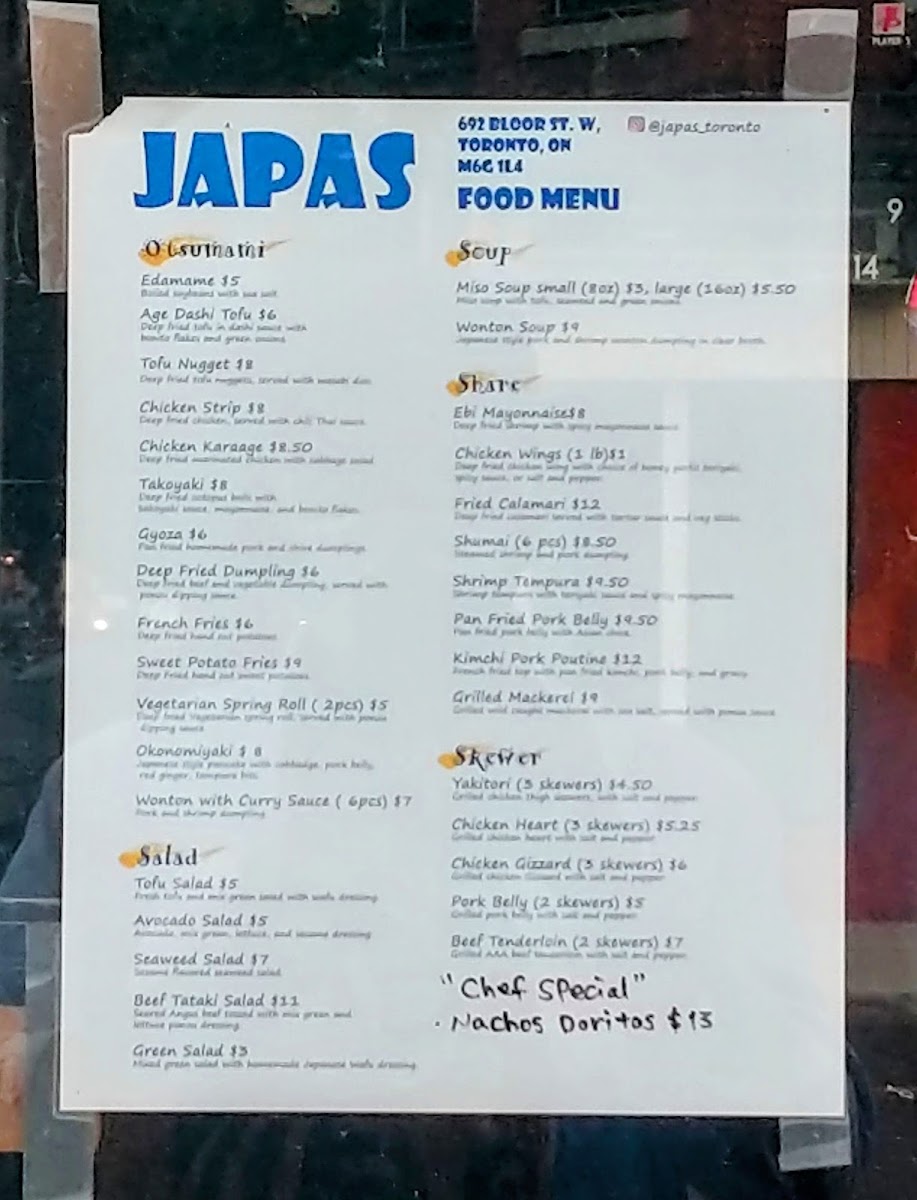 PLAYER 1
9
14
JAPAS
692 BLOOR ST. W,
TORONTO, ON
M6G 1L4
@japas_toronto
FOOD MENU
Otsumami
Edamame $5
Boiled soybeans with sea salt
Age Dashi Tofu $6
Deep fried tofu in dashi sauce with
bonito flakes and green onions
Tofu Nugget $8
Deep fried tofu nuggets, served with wasabi
Chicken Strip $8
Deep fried chicken, served with chili Thai sauce
Chicken Karaage $8.50
Deep fried marinated chicken with cabbage salad
Takoyaki $8
Deep fried octopus balls with
takoyaki sauce, mayonnaise, and bonito flakes
Gyoza $6
Pan fried homemade pork and chive dumplings
Deep Fried Dumpling $6
Deep fried beef and vegetable dumpling, served with
ponzu dipping sauce
French Fries $6
Deep fried hand cut potatoes
Sweet Potato Fries $9
Deep fried hand cut sweet potatoes
Vegetarian Spring Roll ( 2pcs) $5
Deep fried Vegetarian spring roll, served with ponzu
dipping sauce
Okonomiyaki $ 8
Japanese style pancake with cabbadge, pork belly,
red ginger, tempura bits
Wonton with Curry Sauce ( 6pcs) $7
Pork and shrimp dumpling
Salad
Tofu Salad $5
Fresh tofu and mix green salad with wafu dressing
Avocado Salad $5
Avocado, mix green, lettuce, and sesame dressing
Seaweed Salad $7
Sesame flavored seaweed salad
Beef Tataki Salad $11
Seared Angus beef tossed with mix green and
lettuce ponzu dressing
Green Salad $3
Mixed green salad with homemade Japanese Wafu dressing
Soup
Miso Soup small (8oz) $3, large (16oz) $5.50
Miso soup with tofu, seaweed and green onions
Wonton Soup $9
Japanese style pork and shrimp wonton dumpling in clear broth
Share
Ebi Mayonnaise$8
Deep fried shrimp with spicy mayonnaise sauce
Chicken Wings (1 lb)$1
Deep fried chicken wing with choice of honey garlic teriyaki,
spicy sauce, or salt and pepper
Fried Calamari $12
Deep fried calamari served with tartar sauce and veg sticks
Shumai (6 pcs) $8.50
Steamed shrimp and pork dumpling
Shrimp Tempura $9.50
Shrimp tempura with teriyaki sauce and spicy mayonnaise
Pan Fried Pork Belly $9.50
Pan fried pork belly with Asian chive
Kimchi Pork Poutine $12
French fried top with pan fried kimchi, pork belly, and gravy
Grilled Mackerel $9
Grilled wild caught mackerel with sea salt, served with ponzu sauce
Skewer
Yakitori (3 skewers) $4.50
Grilled chicken thigh skewers, with salt and pepper
Chicken Heart (3 skewers) $5.25
Grilled chicken heart with salt and pepper
Chicken Gizzard (3 skewers) $6
Grilled chicken Gizzard with salt and pepper
Pork Belly (2 skewers) $5
Grilled pork belly with salt and pepper
Beef Tenderloin (2 skewers) $7
Grilled AAA beef tenderloin with salt and pepper
"Chef Special"
· Nachos Doritos $13